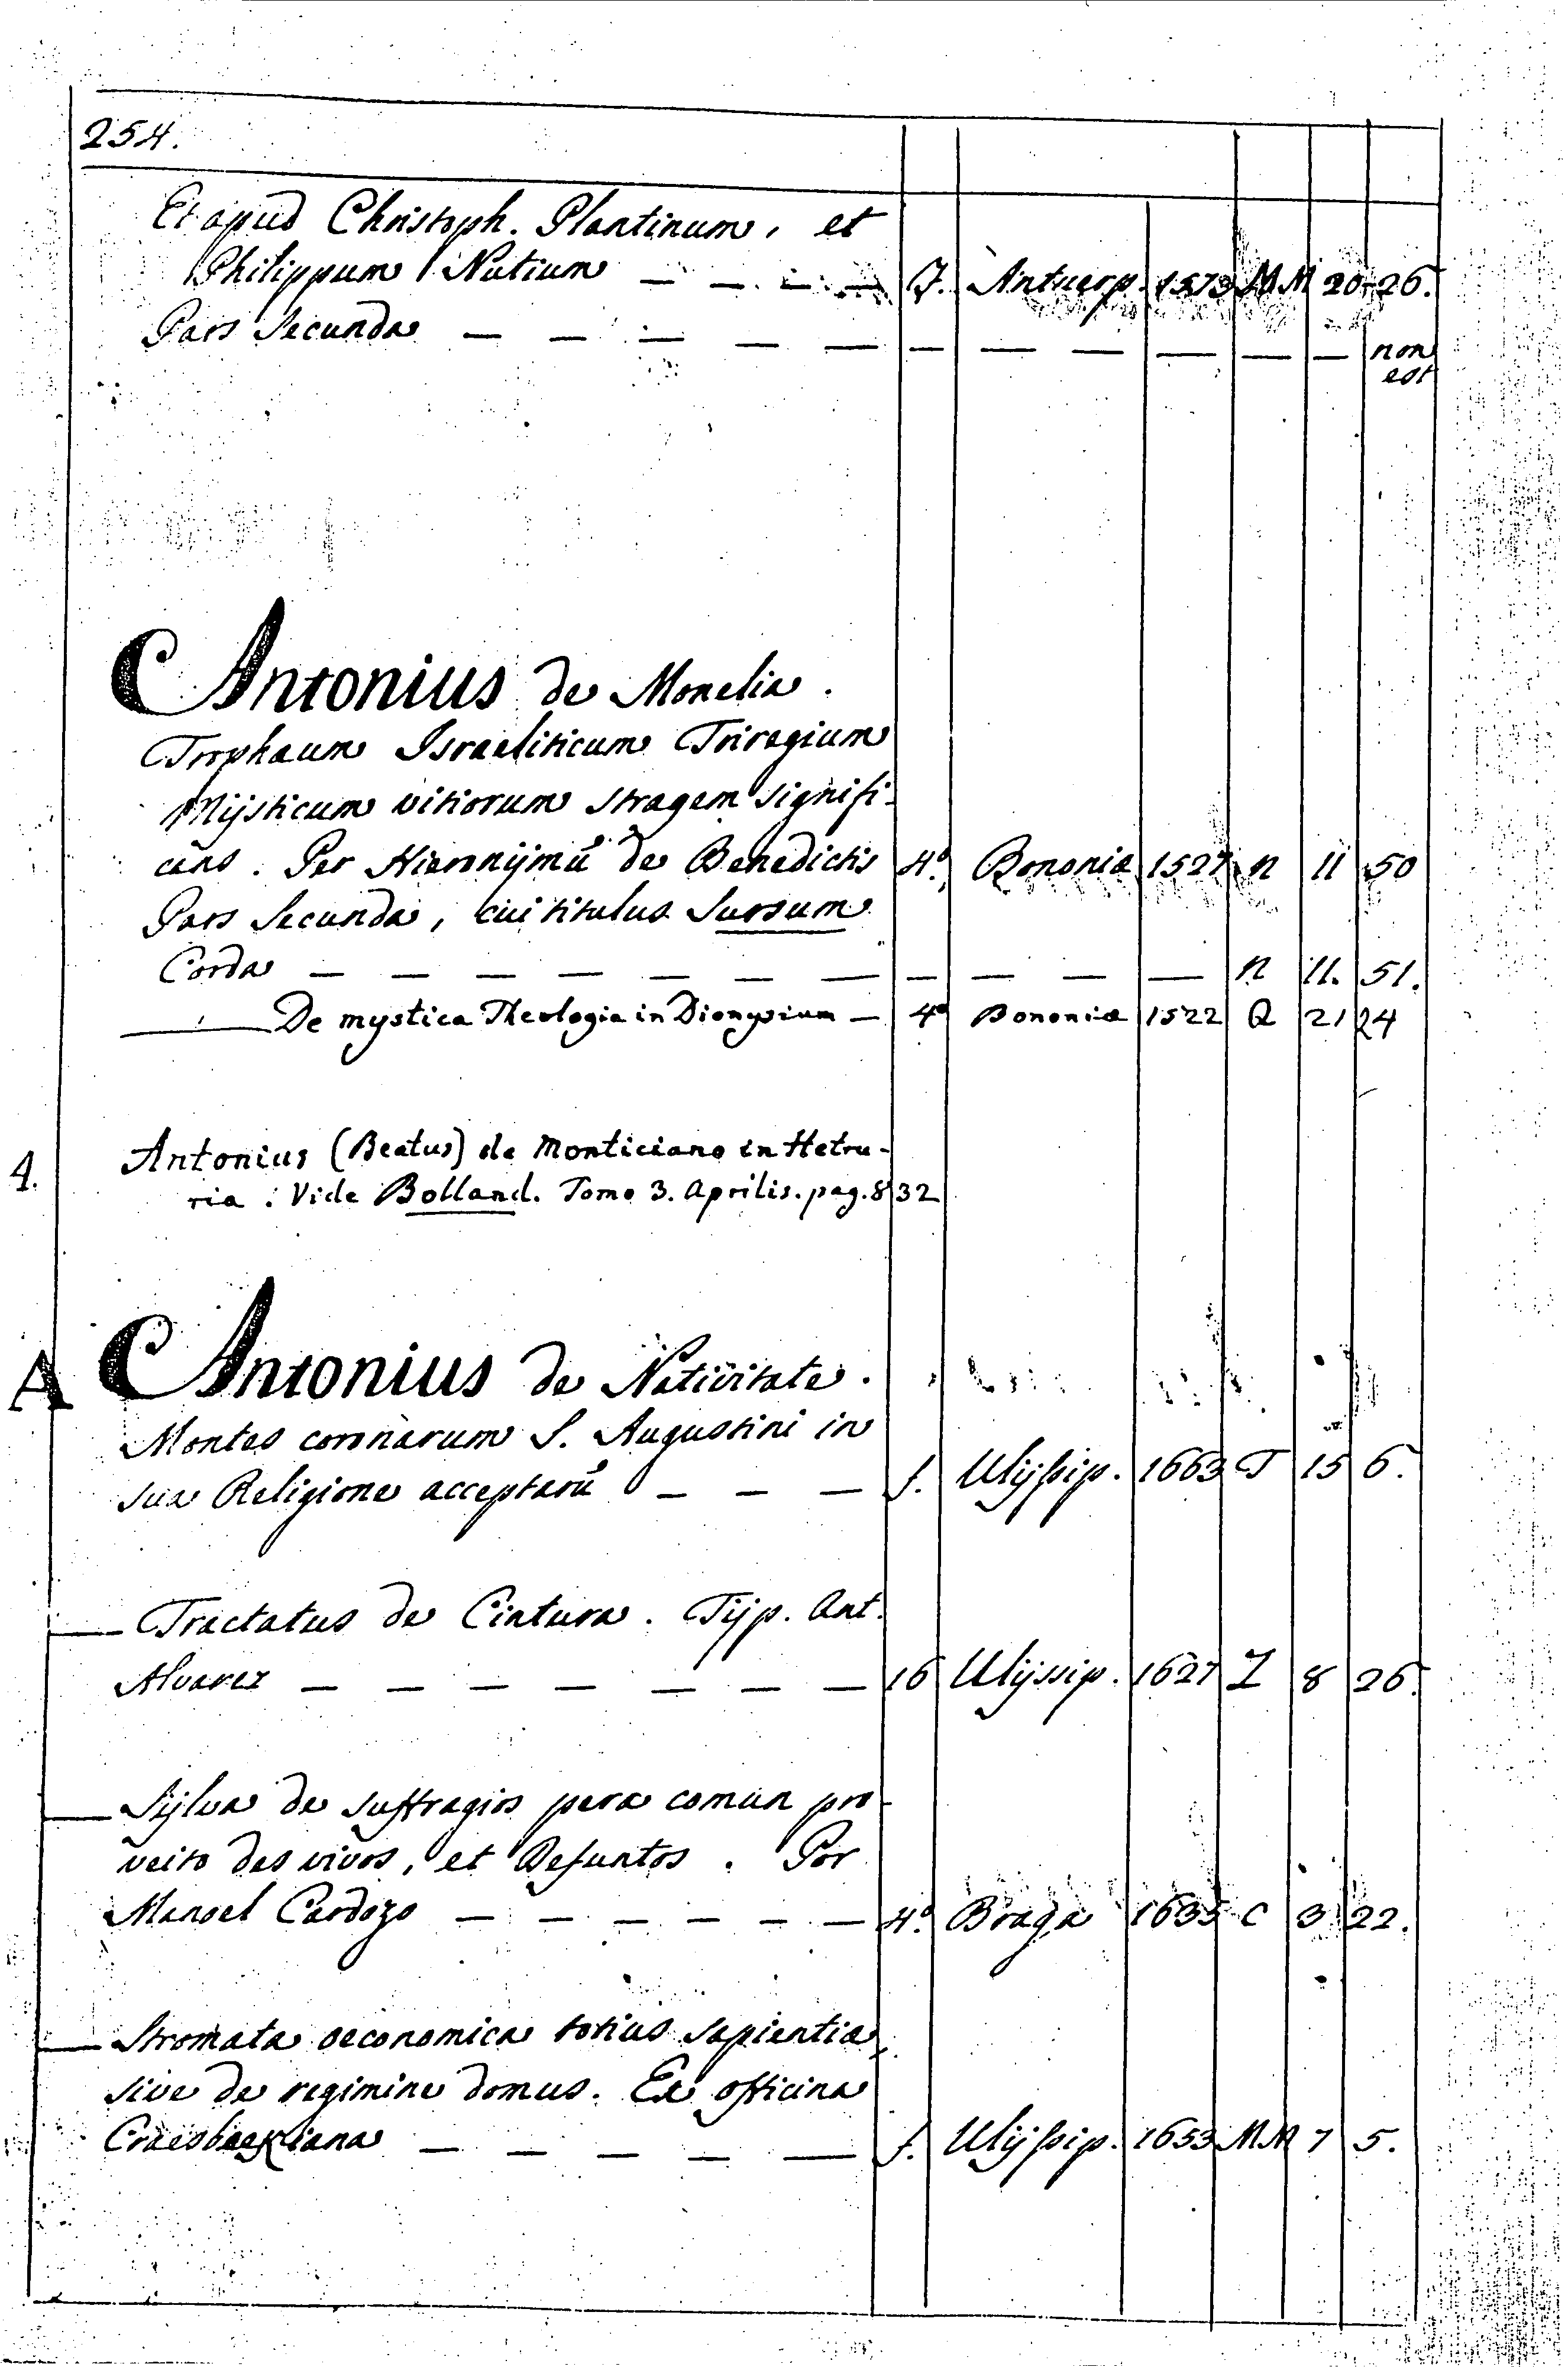 254.
Et apud Christoph. Plantinum, et
Philippum Nutium — — — — f. Antuerp. 1573 MM 20 26.
Pars Secunda — — — — — — — — — — — non
est
Antonius de Monelia.
Trophaeum Israeliticum Triregium
Mysticum vitiorum stragem signifi-
cans. Per Hieronymū de Benedictis 4º. Bononiæ 1527 n 11 50
Pars Secunda, cui titulus Sursum
Corda — — — — — — — — — — — n 11. 51.
— De mystica Theologia in Dionysium — 4º Bononiæ 1522 Q 21 24
4. Antonius (Beatus) de Monticiano in Hetru-
ria: Vide Bolland. Tomo 3. Aprilis. pag. 832
A Antonius de Nativitate.
Montes coronarum S. Augustini in
sua Religione acceptarū — — — f. Ulyssip. 1663 T 15 6.
— Tractatus de Cintura. Typ. Ant.
Alvarez — — — — — — — 16 Ulyssip. 1627 Z 8 26.
— Sylva de suffragios pera comun pro-
veito des vivos, et Defuntos. Por
Manoel Cardozo — — — — — — 4º. Braga 1635 C 3 22.
— Stromata oeconomica totius sapientiæ,
sive de regimine domus. Ex officina
Craesbeekiana — — — — — f. Ulyssip. 1653 MM 7 5.